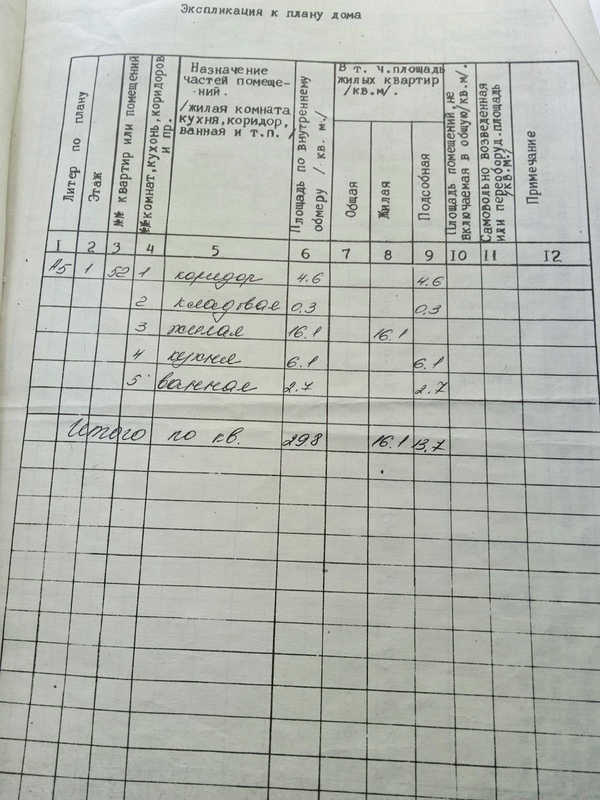 Экспликация к плану дома
Литер по плану
Этаж
№№ квартир или помещений
№№ комнат,кухонь,коридоров и пр.
Назначение
частей помеще-
-ний.
/жилая комната
кухня,коридор,
ванная и т.п. /
Площадь по внутреннему
обмеру / кв. м./
В т. ч.площадь
жилых квартир
/кв.м/.
Общая
Жилая
Подсобная
Площадь помещений,не
включаемая в общую/кв.м/.
Самовольно возведенная
или переоборуд.площадь
/кв.м./
Примечание
I 2 3 4 5 6 7 8 9 IO II I2
А5 1 52 1 коридор 4.6 4.6
2 кладовая 0,3 0,3
3 жилая 16.1 16.1
4 кухня 6.1 6.1
5 ванная 2.7 2.7
Итого по кв. 29.8 16.1 13.7